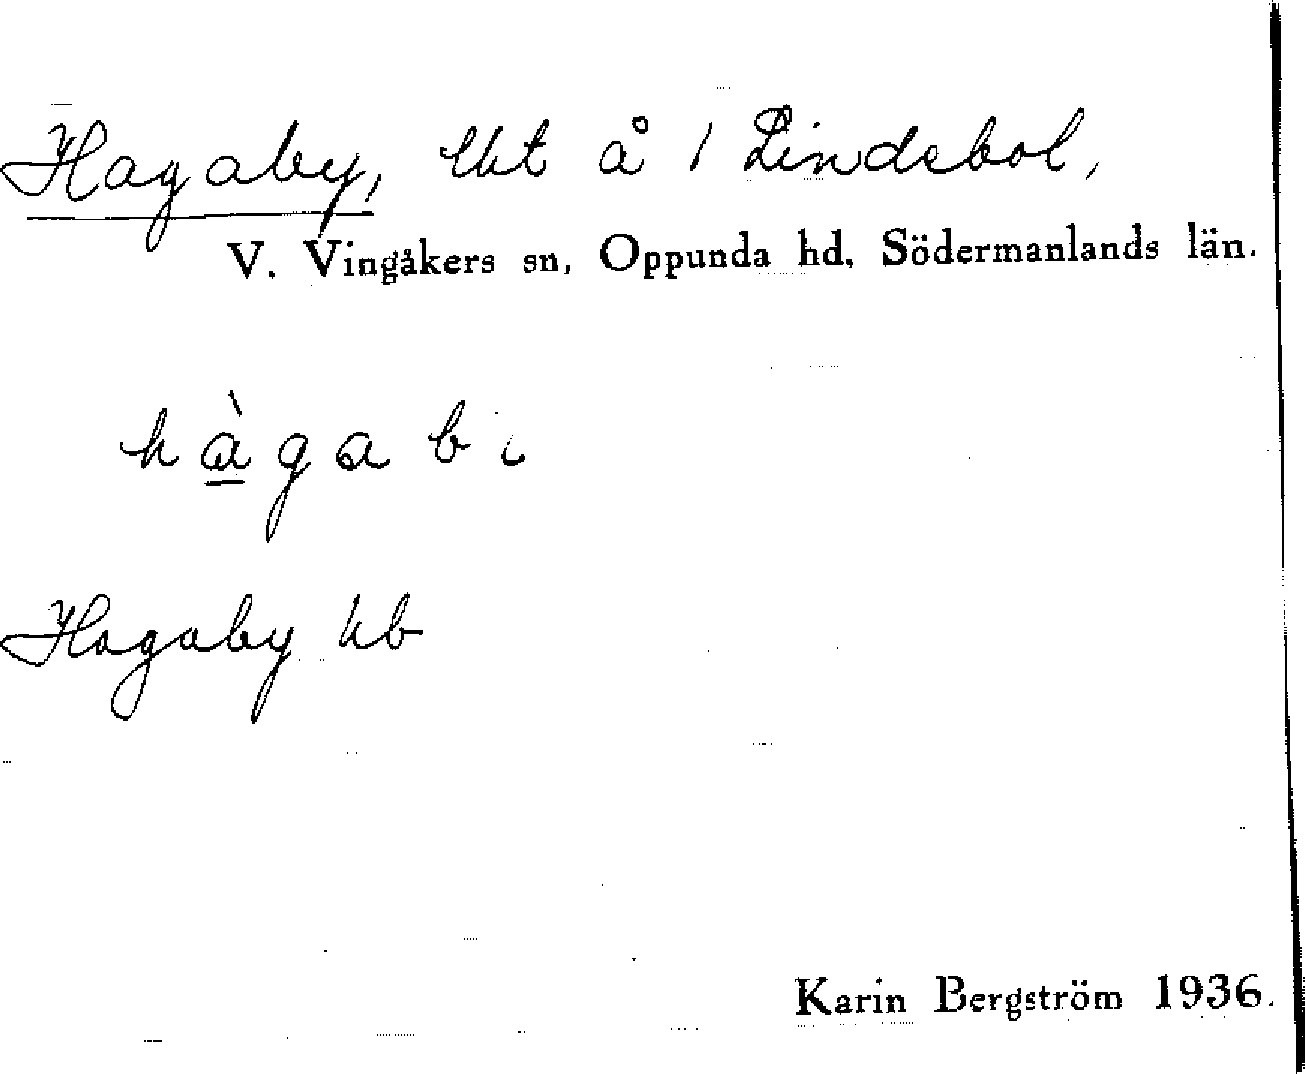 Hagaby, lht å 1 Lindebol,
V. Vingåkers sn, Oppunda hd, Södermanlands län.
hàgabi
Hagaby hb
Karin Bergström 1936.